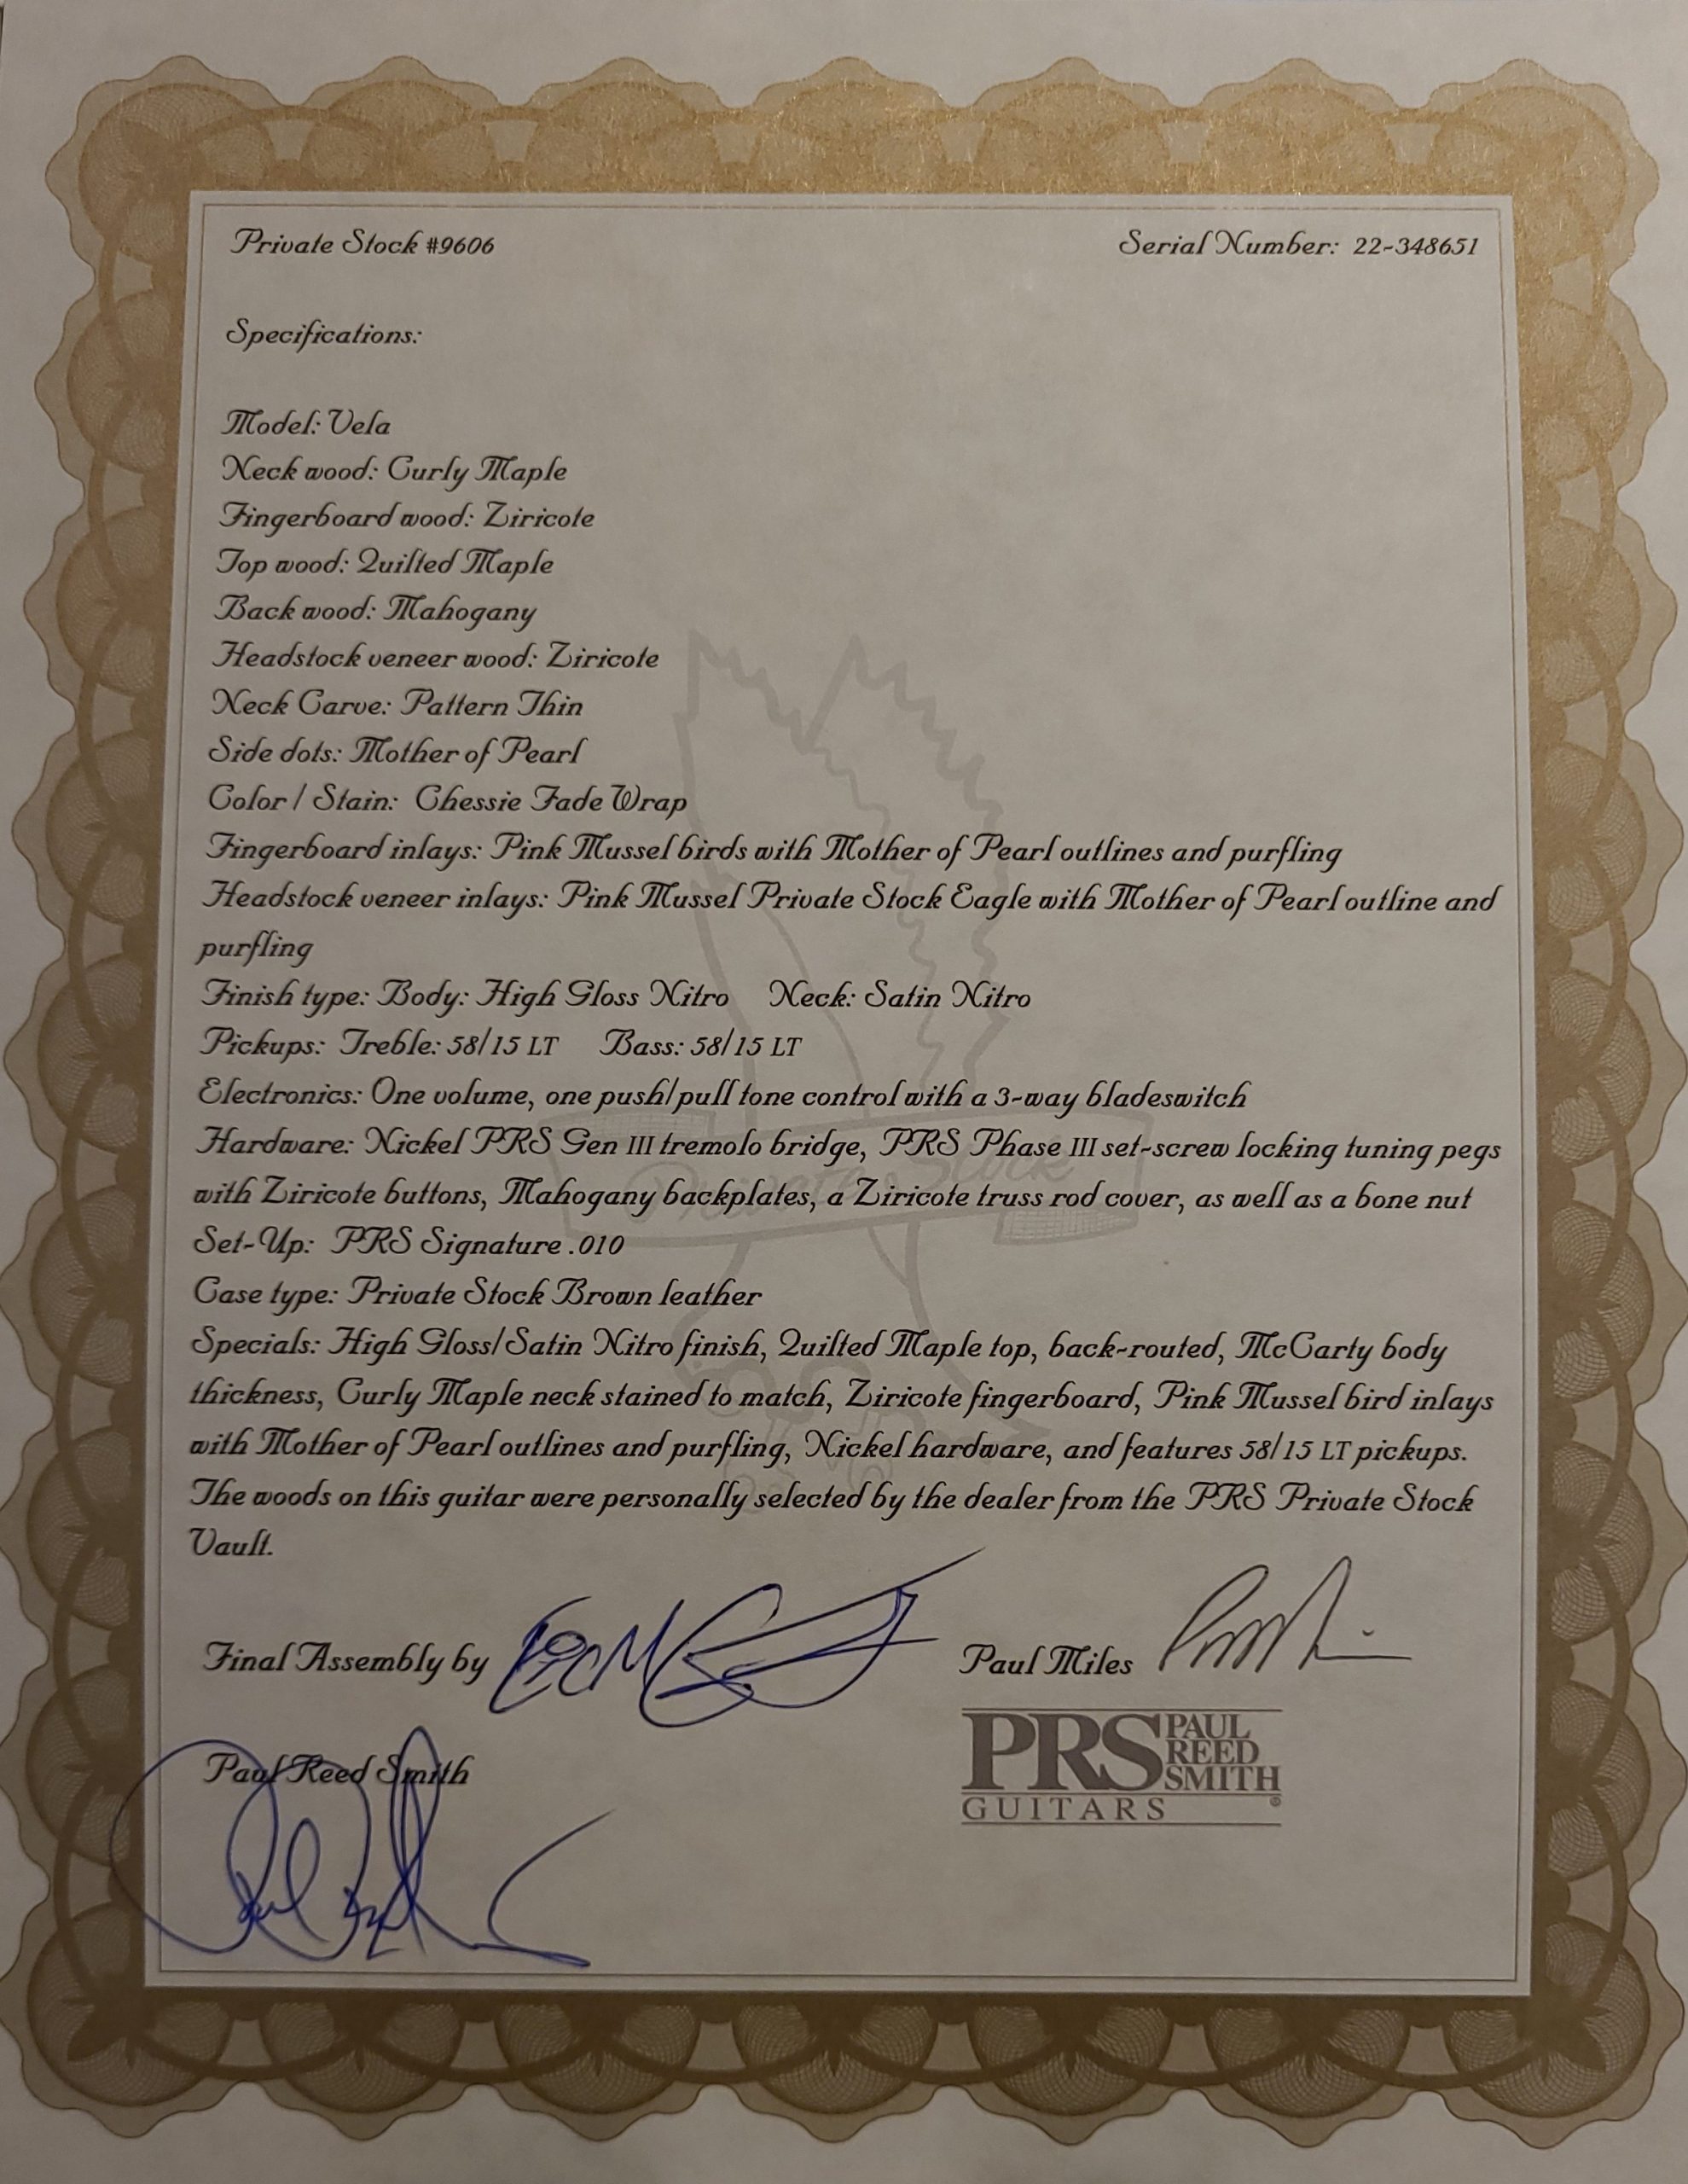 Private Stock #9606
Serial Number: 22-348651
Specifications:
Model: Vela
Neck wood: Curly Maple
Fingerboard wood: Ziricote
Top wood: Quilted Maple
Back wood: Mahogany
Headstock veneer wood: Ziricote
Neck Carve: Pattern Thin
Side dots: Mother of Pearl
Color / Stain: Chessie Fade Wrap
Fingerboard inlays: Pink Mussel birds with Mother of Pearl outlines and purfling
Headstock veneer inlays: Pink Mussel Private Stock Eagle with Mother of Pearl outline and
purfling
Finish type: Body: High Gloss Nitro Neck: Satin Nitro
Pickups: Treble: 58/15 LT Bass: 58/15 LT
Electronics: One volume, one push/pull tone control with a 3-way bladeswitch
Hardware: Nickel PRS Gen III tremolo bridge, PRS Phase III set-screw locking tuning pegs
with Ziricote buttons, Mahogany backplates, a Ziricote truss rod cover, as well as a bone nut
Set-Up: PRS Signature .010
Case type: Private Stock Brown leather
Specials: High Gloss/Satin Nitro finish, Quilted Maple top, back-routed, McCarty body
thickness, Curly Maple neck stained to match, Ziricote fingerboard, Pink Mussel bird inlays
with Mother of Pearl outlines and purfling, Nickel hardware, and features 58/15 LT pickups.
The woods on this guitar were personally selected by the dealer from the PRS Private Stock
Vault.
Private Stock
Final Assembly by
Paul Miles
Paul Reed Smith
PRS PAUL
REED
SMITH
GUITARS ®